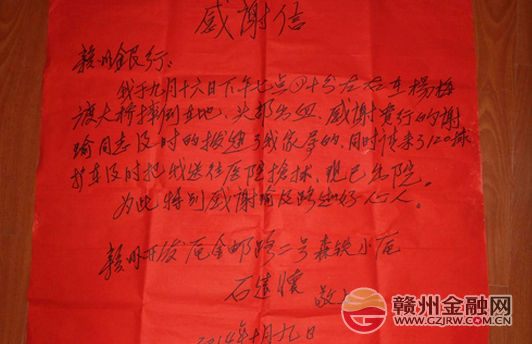 感谢信
赣州銀行:
我于九月十六日下午七点四十分左右在杨梅
渡大桥摔倒在地、头部出血、感謝貴行的谢
瑜同志及时的拨通了我家属的、同时请来了120救
护车及时把我送往医院搶救、现已出院。
为此特别感谢谢瑜及路边好心人。
赣州开发区金邮路二号森铁小区
石 懷 敬上
2014年十月九日
赣州金融网
WWW.GZJRW.COM.CN